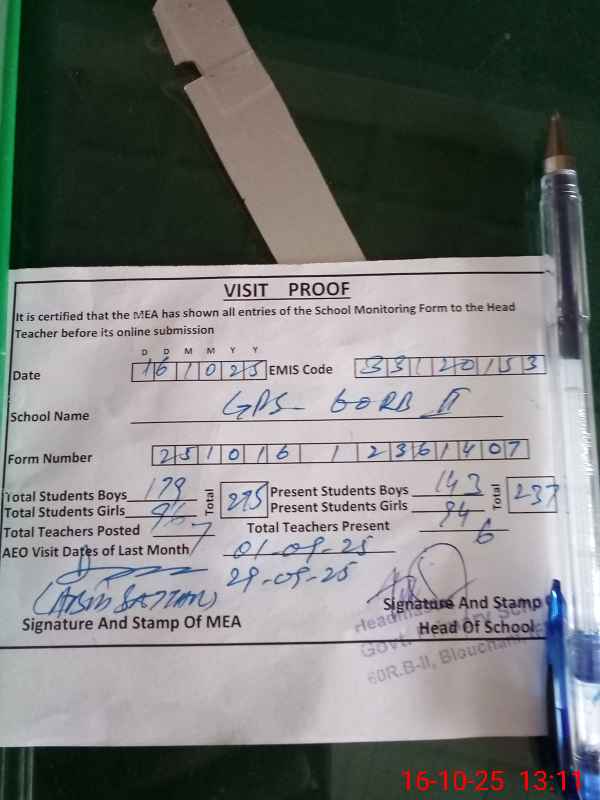 VISIT PROOF
It is certified that the MEA has shown all entries of the School Monitoring Form to the Head
Teacher before its online submission
D D M M Y Y
Date 161025 EMIS Code 33120153
School Name GPS 60RB II
Form Number 251016 1 2361407
Total Students Boys 179 Total 275 Present Students Boys 143 Total 237
Total Students Girls 96 Present Students Girls 94
Total Teachers Posted 7 Total Teachers Present 6
AEO Visit Dates of Last Month 01-09-25
29-09-25
Signature And Stamp Of MEA
Signature And Stamp
Head Of School
Headmaster
Govt. Primary
60R.B-II,
16-10-25 13:11